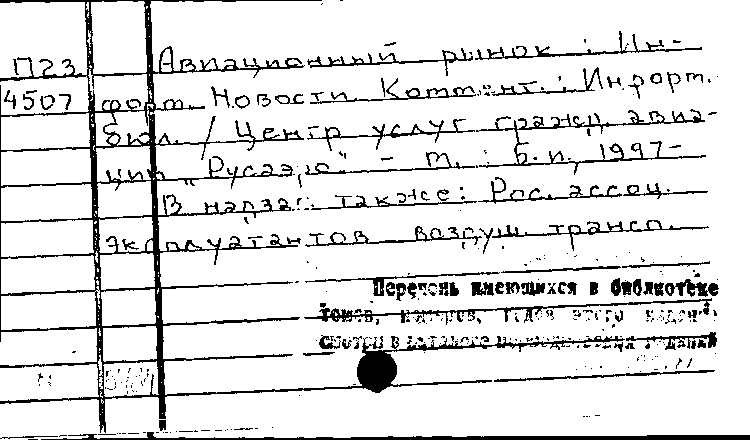 П23 Авиационный рынок : Ин-
4507 форм. Новости. Коммент. : Информ.
бюл. / Центр услуг гражд. авиа-
ции „Русаэро“. - М. : Б. и., 1997-
В надзаг. также: Рос. ассоц.
эксплуатантов воздуш. трансп.
Перечень имеющихся в библиотеке
томов, номеров, годов этого издания
смотри в каталоге периодических изданий